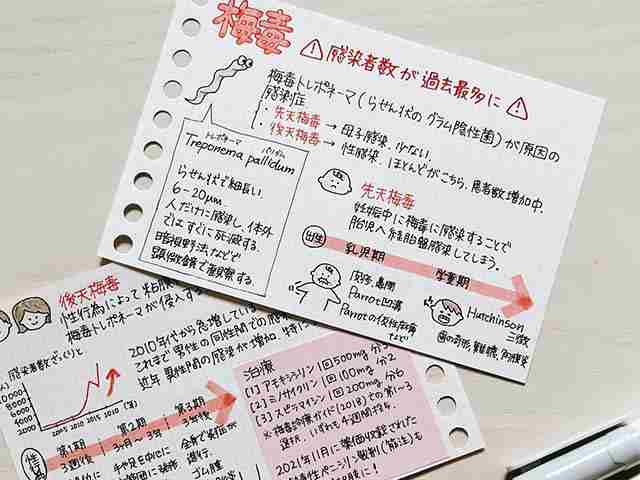 梅毒
⚠ 感染者数が過去最多に ⚠
梅毒トレポネーマ(らせん状のグラム陰性菌)が原因の
感染症
先天梅毒 → 母子感染. 少ない.
後天梅毒 → 性感染. ほとんどがこちら. 患者数増加中.
トレポネーマ パリダム
Treponema pallidum
らせん状で細長い.
6〜20μm.
人だけに感染し、体外
ではすぐに死滅する.
暗視野法などで
顕微鏡で観察する.
先天梅毒
妊娠中に梅毒に感染することで
胎児へ経胎盤感染してしまう.
出生 乳児期 学童期
Parrot凹溝
Parrotの仮性麻痺
など
Hutchinson
三徴
後天梅毒
性行為によって粘膜
梅毒トレポネーマが侵入す
2010年代から急増してい
これまで男性の同性間での感
近年 異性間の感染が増加.
感染者数ざっくりと
10000
8000
6000
4000
2000
2000 2005 2010 2015 (年)
第1期 第2期 第3期
3週後 3ヶ月〜3年 3年後
手や足を中心に
全身で
進行.
ゴム腫
治療
[1] アモキシシリン 1回500mg 分3
[2] ミノサイクリン 1回100mg 分2
[3] スピラマイシン 1回200mg 分6
※梅毒診療ガイド(2018)さの1〜3
選択. いずれも4週間投与.
2021年11月に薬価収載された
持続性ペニシリン製剤(筋注)も